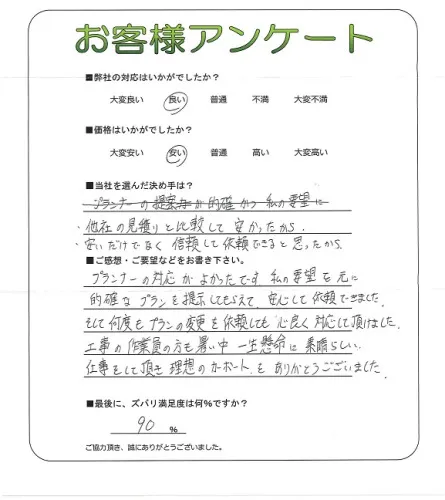 お客様アンケート
■弊社の対応はいかがでしたか？
大変良い 良い 普通 不満 大変不満
■価格はいかがでしたか？
大変安い 安い 普通 高い 大変高い
■当社を選んだ決め手は？
プランナーの提案力が的確かつ私の要望に
・他社の見積りと比較して安かったから。
・安いだけでなく信頼して依頼できると思ったから。
■ご感想・ご要望などをお書き下さい。
プランナーの対応がよかったです 私の要望を元に
的確なプランを提示してもらえて、安心して依頼できました。
そして何度もプランの変更を依頼しても心良く対応して頂けました。
工事の作業員の方も暑い中一生懸命に素晴らしい
仕事をして頂き理想のカーポートをありがとうございました。
■最後に、ズバリ満足度は何％ですか？
90 ％
ご協力頂き、誠にありがとうございました。